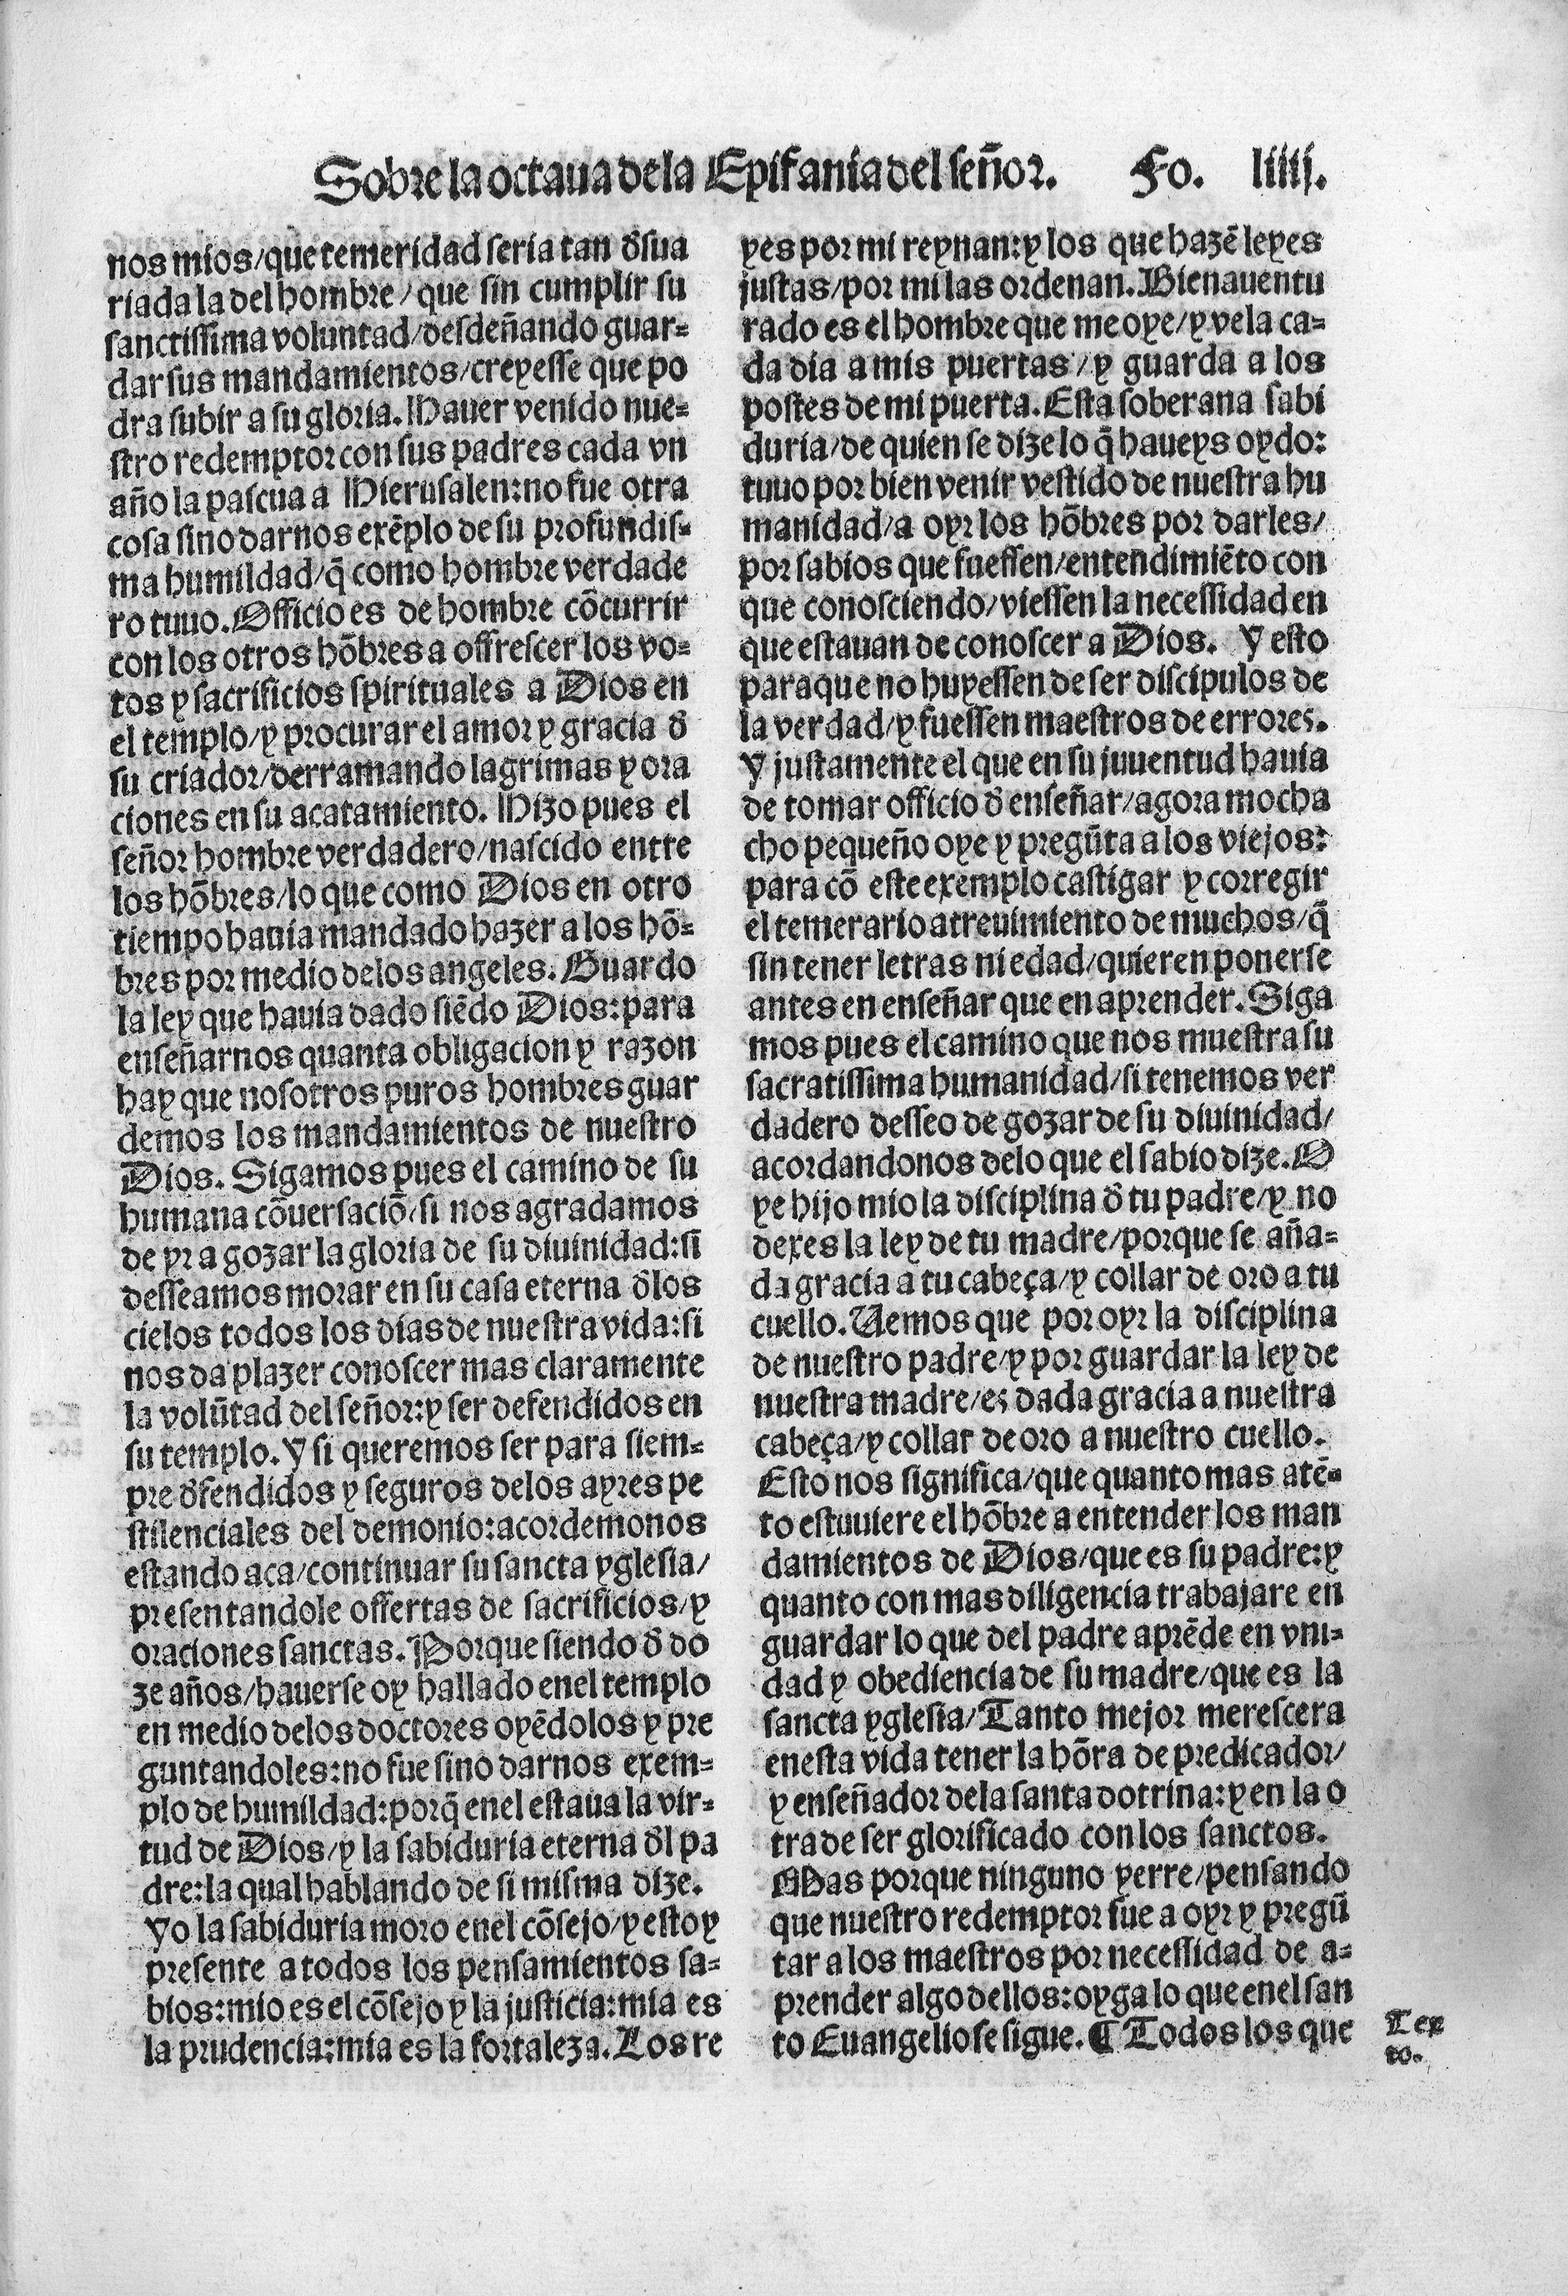 Sobre la octaua de la Epifania del señor. Fo. liiij.
nos mios/que temeridad seria tan d̃sua
riada la del hombre/que sin cumplir su
sanctissima voluntad/desdeñando guar=
dar sus mandamientos/creyesse que po
dra subir a su gloria. Hauer venido nue=
stro redemptor con sus padres cada vn
año la pascua a Hierusalen:no fue otra
cosa sino darnos exẽplo de su profundis=
ma humildad/q̃ como hombre verdade
ro tuuo. Officio es de hombre cõcurrir
con los otros hõbres a offrescer los vo=
tos y sacrificios spirituales a Dios en
el templo/y procurar el amor y gracia d̃
su criador/derramando lagrimas y ora
ciones en su acatamiento. Hizo pues el
señor hombre verdadero/nascido entre
los hõbres/lo que como Dios en otro
tiempo hauia mandado hazer a los hõ=
bres por medio delos angeles. Guardo
la ley que hauia dado siẽdo Dios:para
enseñarnos quanta obligacion y razon
hay que nosotros puros hombres guar
demos los mandamientos de nuestro
Dios. Sigamos pues el camino de su
humana cõuersaciõ/si nos agradamos
de yr a gozar la gloria de su diuinidad:si
desseamos morar en su casa eterna d̃los
cielos todos los dias de nuestra vida:si
nos da plazer conoscer mas claramente
la volũtad del señor:y ser defendidos en
su templo. Y si queremos ser para siem=
pre d̃fendidos y seguros delos ayres pe
stilenciales del demonio:acordemonos
estando aca/continuar su sancta yglesia/
presentandole offertas de sacrificios/y
oraciones sanctas. Porque siendo d̃ do
ze años/hauerse oy hallado enel templo
en medio delos doctores oyẽdolos y pre
guntandoles:no fue sino darnos exem=
plo de humildad:porq̃ enel estaua la vir=
tud de Dios/y la sabiduria eterna d̃l pa
dre:la qual hablando de si misma dize.
Yo la sabiduria moro enel cõsejo/y estoy
presente a todos los pensamientos sa=
bios:mio es el cõsejo y la justicia:mia es
la prudencia:mia es la fortaleza. Los re
yes por mi reynan:y los que hazẽ leyes
justas/por mi las ordenan. Bienauentu
rado es el hombre que me oye/y vela ca=
da dia a mis puertas/y guarda a los
postes de mi puerta. Esta soberana sabi
duria/de quien se dize lo q̃ haueys oydo:
tuuo por bien venir vestido de nuestra hu
manidad/a oyr los hõbres por darles/
por sabios que fuessen/entendimiẽto con
que conosciendo/viessen la necessidad en
que estauan de conoscer a Dios. Y esto
paraque no huyessen de ser discipulos de
la verdad/y fuessen maestros de errores.
Y justamente el que en su juuentud hauia
de tomar officio d̃ enseñar/agora mocha
cho pequeño oye y pregũta a los viejos:
para cõ este exemplo castigar y corregir
el temerario atreuimiento de muchos/q̃
sin tener letras ni edad/quieren ponerse
antes en enseñar que en aprender. Siga
mos pues el camino que nos muestra su
sacratissima humanidad/si tenemos ver
dadero desseo de gozar de su diuinidad/
acordandonos delo que el sabio dize. O
ye hijo mio la disciplina d̃ tu padre/y no
dexes la ley de tu madre/porque se aña=
da gracia a tu cabeça/y collar de oro a tu
cuello. Uemos que por oyr la disciplina
de nuestro padre/y por guardar la ley de
nuestra madre/es dada gracia a nuestra
cabeça/y collar de oro a nuestro cuello.
Esto nos significa/que quanto mas atẽ=
to estuuiere el hõbre a entender los man
damientos de Dios/que es su padre:y
quanto con mas diligencia trabajare en
guardar lo que del padre aprẽde en vni=
dad y obediencia de su madre/que es la
sancta yglesia/Tanto mejor merescera
enesta vida tener la hõra de predicador/
y enseñador dela santa dotrina:y en la o
tra de ser glorificado con los sanctos.
Mas porque ninguno yerre/pensando
que nuestro redemptor fue a oyr y pregũ
tar a los maestros por necessidad de a=
prender algo dellos:oyga lo que enel san
to Euangelio se sigue. ¶ Todos los que
Tex
to.